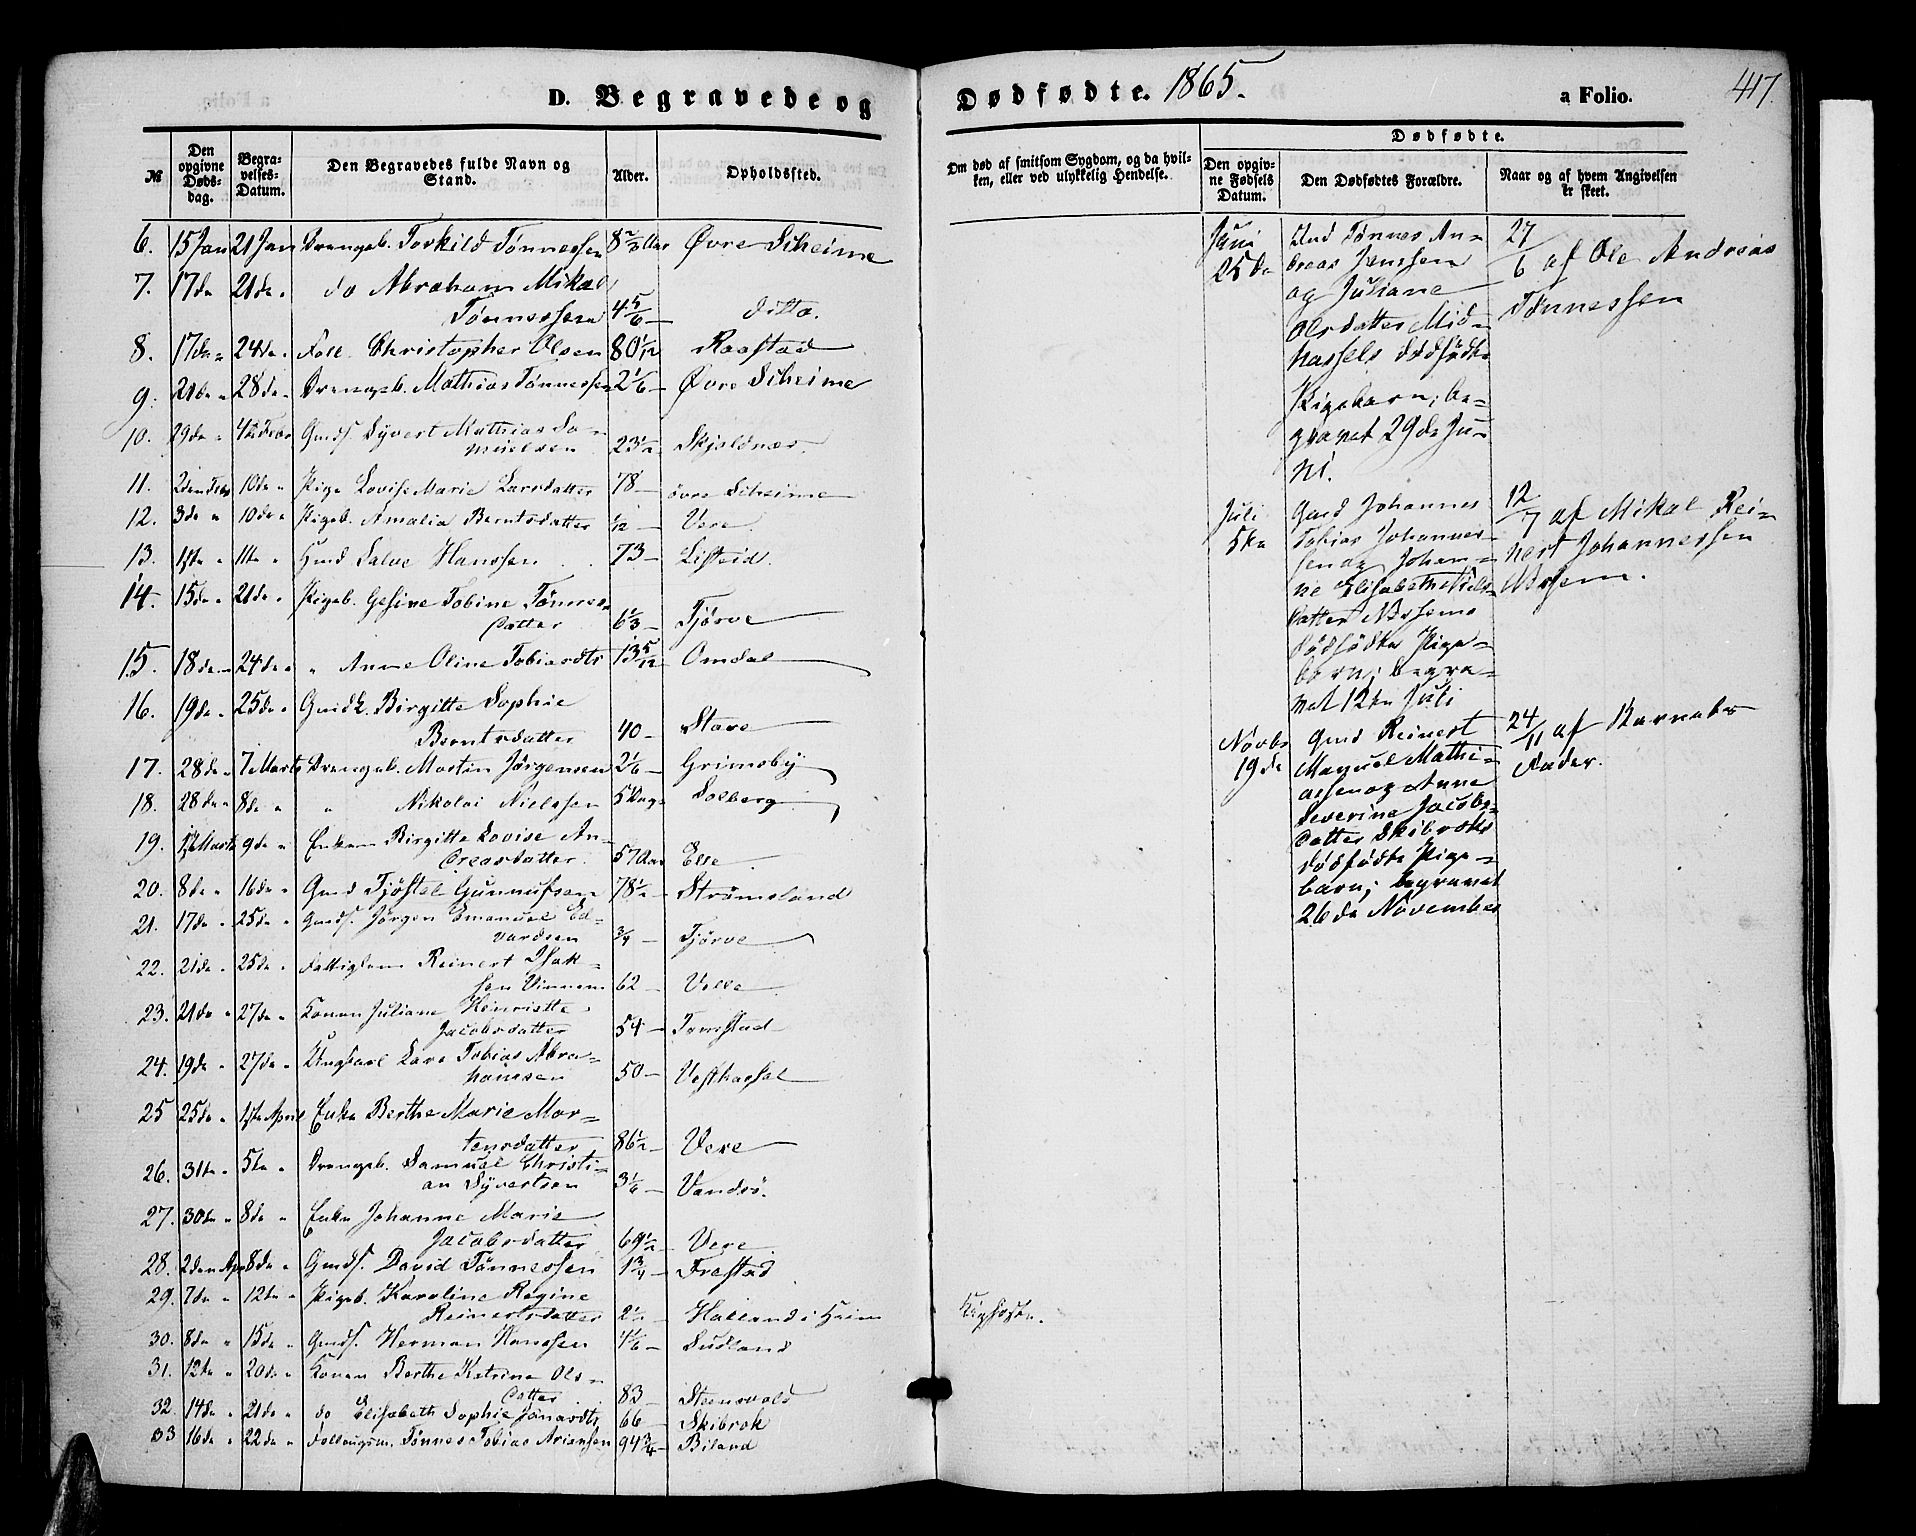 D. Begravede og Dødfødte. 1865. a Folio. 417.
№
Den opgivne Døds-dag.
Begra-velses-Datum.
Den Begravedes fulde Navn og Stand.
Alder.
Opholdssted.
Om død af smitsom Sygdom, og da hvil-ken, eller ved ulykkelig Hendelse.
Dødfødte.
Den opgiv-ne Fødsels Datum.
Den Dødfødtes Forældre.
Naar og af hvem Angivelsen er skeet.
6. 15 Jan 21 Jan Drengeb. Torkild Tønnessen 8 2/3 Aar Øvre Skeime
7. 17de 21de " do Abraham Mikal
Tønnessen 4 5/6 — ditto.
8. 17de " 24de " Foll. Christopher Olsen 80 1/12 Raastad
9. 21de " 28de " Drengeb. Mathias Tønnessen 2 1/6 — Øvre Skeime
10. 29de " 4de Febr Gmds. Syvert Mathias Sa-
muelsen 23 1/2 Skjoldnæs.
11. 2den Febr 10de " Pige Lovise Marie Larsdatter 78 — øvre Skeime
12. 3de " 10de " Pigeb. Amalia Berntsdatter 1/12 — Vere
13. 1ste " 11te " Gmd Salve Hanssen 73 — Listeid.
14. 15de " 21de " Pigeb. Gesine Tobine Tønnes-
datter 6 1/3 Tjørve
15. 18de " 24de " " Anne Oline Tobiasdtr 13 5/12 Omdal
16. 19de " 25de " Gmdk. Birgitte Sophie
Berntsdatter 40 — Stave
17. 28de " 7 Marts Drengeb. Martin Jørgensen 2 1/6 — Grimsby
18. 28de " 8de " " Nikolai Nielssen 5 Dage Solberg
19. 1ste Marts 9de " Enken Birgitte Lovise An-
dreasdatter. 57 Aar Elle
20. 8de " 16de " Gmd Tjøstel Gunnufsen 78 1/2 — Strømsland
21. 17de " 25de " Gmds. Jørgen Emanuel Ed-
vardsen 3/4 — Tjørve
22. 21de " 25de " Fattiglem Reinert Isak-
sen 62 — Velle
23. 21de " 27de " Konen Juliane Henriette
Jacobsdatter 54 — Tomstad
24. 19de " 27de " Ungkarl Lars Tobias Abra-
hamsen 50 — Vesthassel
25 25de " 1ste April Enke Berthe Marie Mor-
tensdatter 86 1/2 — Vere
26. 31te " 5te " Drengeb. Samuel Christi-
an Syvertsen 3 1/6 — Vandsø.
27. 30te " 8de " Enke Johanne Marie
Jacobsdatter 69 1/2 — Vere
28. 2den Apr 8de " Gmds. David Tønnessen 1 3/4 — Frestad
29. 7de " 12te " Pigeb. Karoline Regine
Reinertsdatter 2 1/2 Halland i Heim Kighoste.
30. 8de " 15de " Gmds. Herman Hanssen 4 1/6 — Sudland
31. 12te " 20de " Konen Berthe Katrine Ols-
datter 83 — Steensvold
32. 14de " 21de " do Elisabeth Sophie Jonasdtr 66 — Skibrok
33 16de " 22de " Tønnes Tobias Ariansen 94 3/4 Biland
Juni
25de
Gmd Tønnes An-
dreas Jenssen
og Juliane
Olsdatter Mid-
hassels dødfødte
Pigebarn; be-
gravet 29de Ju-
ni.
27/6 af Ole Andreas
Tønnessen
Juli
5te
Gmd Johannes
Tobias Johannes-
sen og Johan-
ne Elisabeth Niels-
datter
dødfødte Pige-
barn; begra-
vet 12te Juli
12/7 af Mikal Rei-
nert Johannessen
Novbr
19de
Gmd Reinert
Manuel Mathi-
assen og Anne
Severine Jacobs-
datter Skibroks
dødfødte Pige-
barn; begravet
26de November
24/11 af Barnets
Fader.